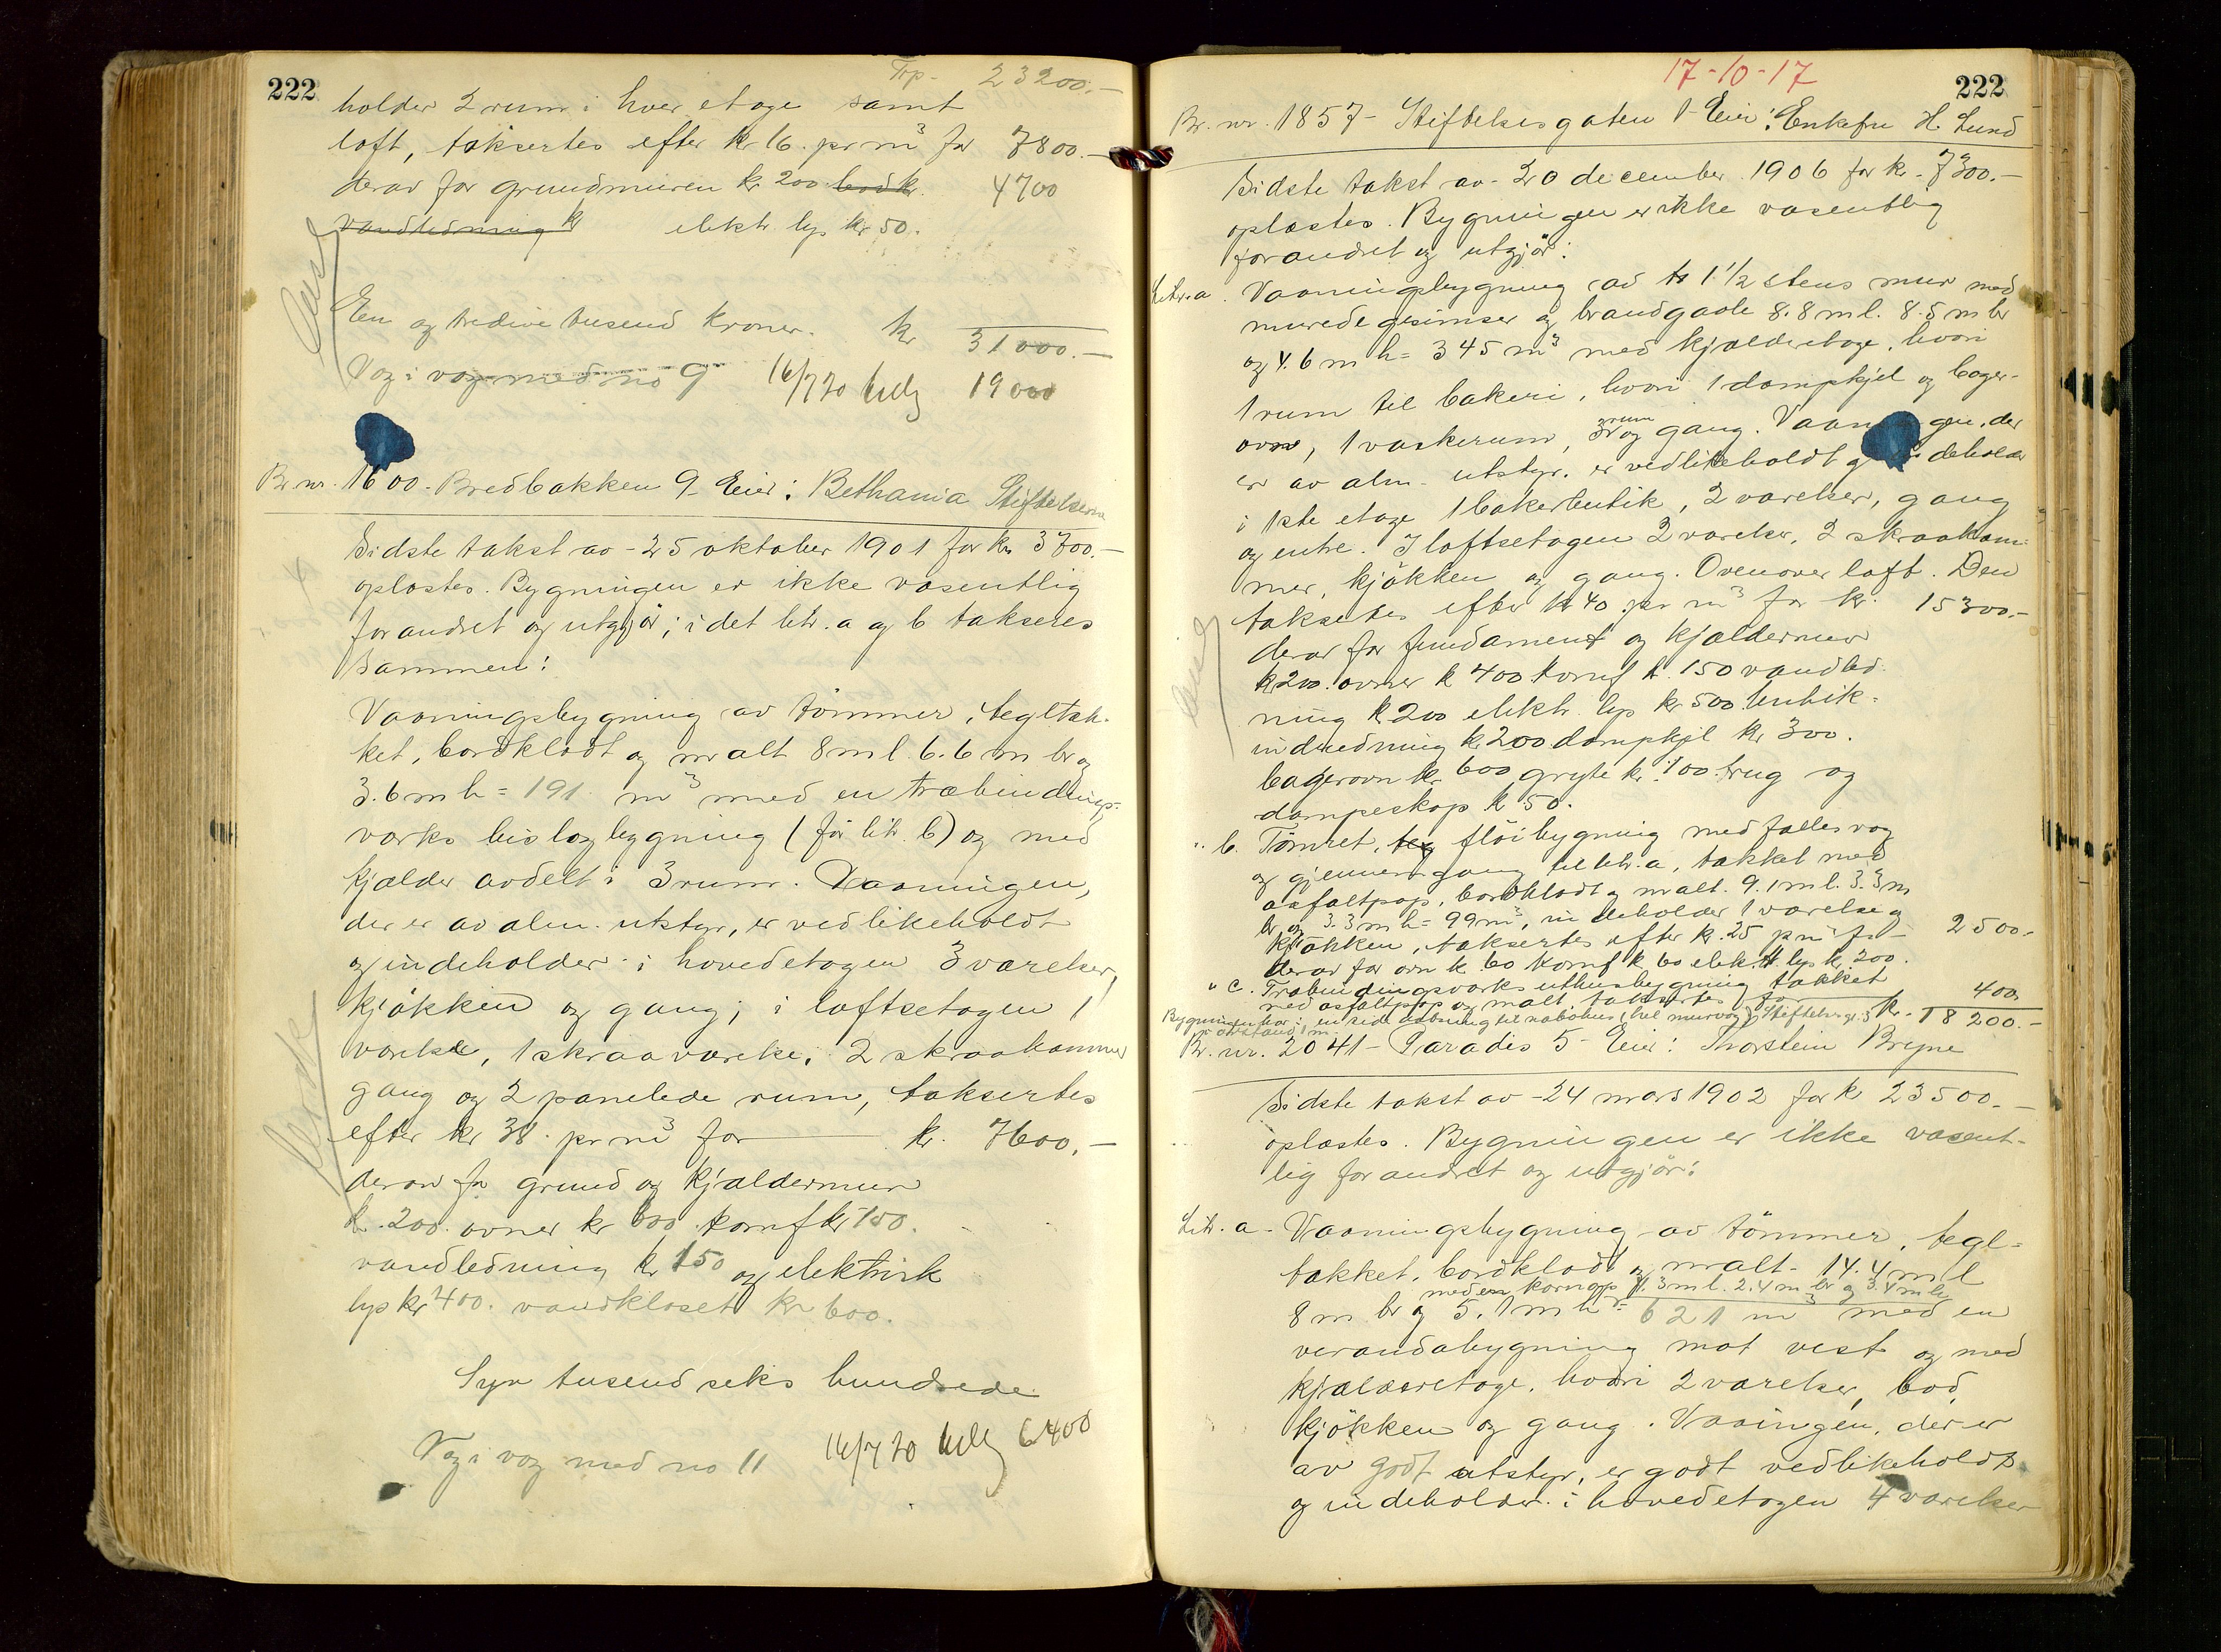 222
Trp - 23200.-
holder 2 rum i hver etage samt
loft, taksertes efter kr 16. pr m3 for 7800.-
derav for grundmuren kr 200 bod k. 4700
vandledning k elektr. lys kr 50.
En og tredive tusend kroner. kr 31000.-
Væg i væg med no 9 16/7 20 19000
Br. nr. 1600. Bredbakken 9. Eier: Bethania Stiftelserne
Sidste takst av - 25 oktober 1901 for kr 3700.-
oplæstes. Bygningen er ikke væsentlig
forandret og utgjør; i det litr. a og b takseres
sammen:
Vaaningsbygning av tømmer, tegltæk-
ket, bordklædt og malt 8 m l. 6.6 m br og
3.6 m h = 191 m3 med en træbindings-
værks bislagbygning (før litr. b) og med
kjælder avdelt i 3 rum. Vaaningen,
der er av alm. utstyr, er vedlikeholdt
og indeholder i hovedetagen 3 værelser,
kjøkken og gang; i loftsetagen 1
værelse, 1 skraaværelse, 2 skraakammer
gang og 2 panelede rum, taksertes
efter kr 38. pr m3 for kr. 7600.-
derav for grund og kjældermur
k. 200. ovner kr 600. komf kr 150.
vandledning kr 150 og elektrisk
lys kr 400. vandkloset kr 600.
Syv tusend seks hundrede
Væg i væg med no 11 16/7 20 6400
17-10-17
222
Br. nr. 1857 - Stiftelsesgaten 1 - Eier: Enkefru H. Lund
Sidste takst av - 20 december 1906 for kr. 7300.-
oplæstes. Bygningen er ikke væsentlig
forandret og utgjør:
Litr. a. Vaaningsbygning av 1 1/2 stens mur med
murede gesimser og brandgavle 8.8 m l. 8.5 m br
og 4.6 m h = 345 m3 med kjælderetage, hvori
1 rum til bakeri, hvori 1 dampkjel og bager-
ovn, 1 vaskerum, 3 rum og gang. Vaaningen, der
er av alm. utstyr, er vedlikeholdt og indeholder
i 1ste etage 1 bakerbutik, 2 værelser, gang
og entre. I loftsetagen 2 værelser, 2 skraakam-
mer, kjøkken og gang. Ovenover loft. Den
taksertes efter kr 40 pr m3 for kr. 15300.-
derav for fundament og kjældermur
kr 200. ovner k 400 komf k. 150 vandled
ning k 200 elektr. lys kr 500. butik-
indredning kr 200 dampkjel kr 300.
bagerovn kr. 600 gryte kr. 100. trug og
dampeskap k 50.
" b. Tømret, teg fløibygning med fælles væg
og gjennemgang til litr. a, tækket med
asfaltpap, bordklædt og malt. 9.1 m l. 3.3 m
br og 3.3 m h = 99 m3, indeholder 1 værelse og
kjøkken, taksertes efter kr. 25 pr m3 for - 2500.-
derav for ovn k. 60 komf k 60 elektr. lys kr. 200.
" c. Træbindingsværks uthusbygning tækket
med asfaltpap og malt, taksertes for 400.
Bygningen har i en side aabning til nabohus (hel murvæg) Stiftelsesgt. 3 kr. 18200.-
i avstand 1 m.
Br. nr. 2041 - Paradis 5 - Eier: Thorstein Bryne
Sidste takst av - 24 mars 1902 for kr 23500.-
oplæstes. Bygningen er ikke væsent-
lig forandret og utgjør:
Litr. a - Vaaningsbygning av tømmer, tegl-
tækket, bordklædt og malt - 14.4 m l
med en karnap 4.3 m l. 2.4 m br og 3.4 m h
8 m br og 5.1 m h = 621 m3 med en
verandabygning mot vest og med
kjælderetage, hvori 2 værelser, bod,
kjøkken og gang. Vaaingen, der er
av godt utstyr, er godt vedlikeholdt
og indeholder i hovedetagen 4 værelser